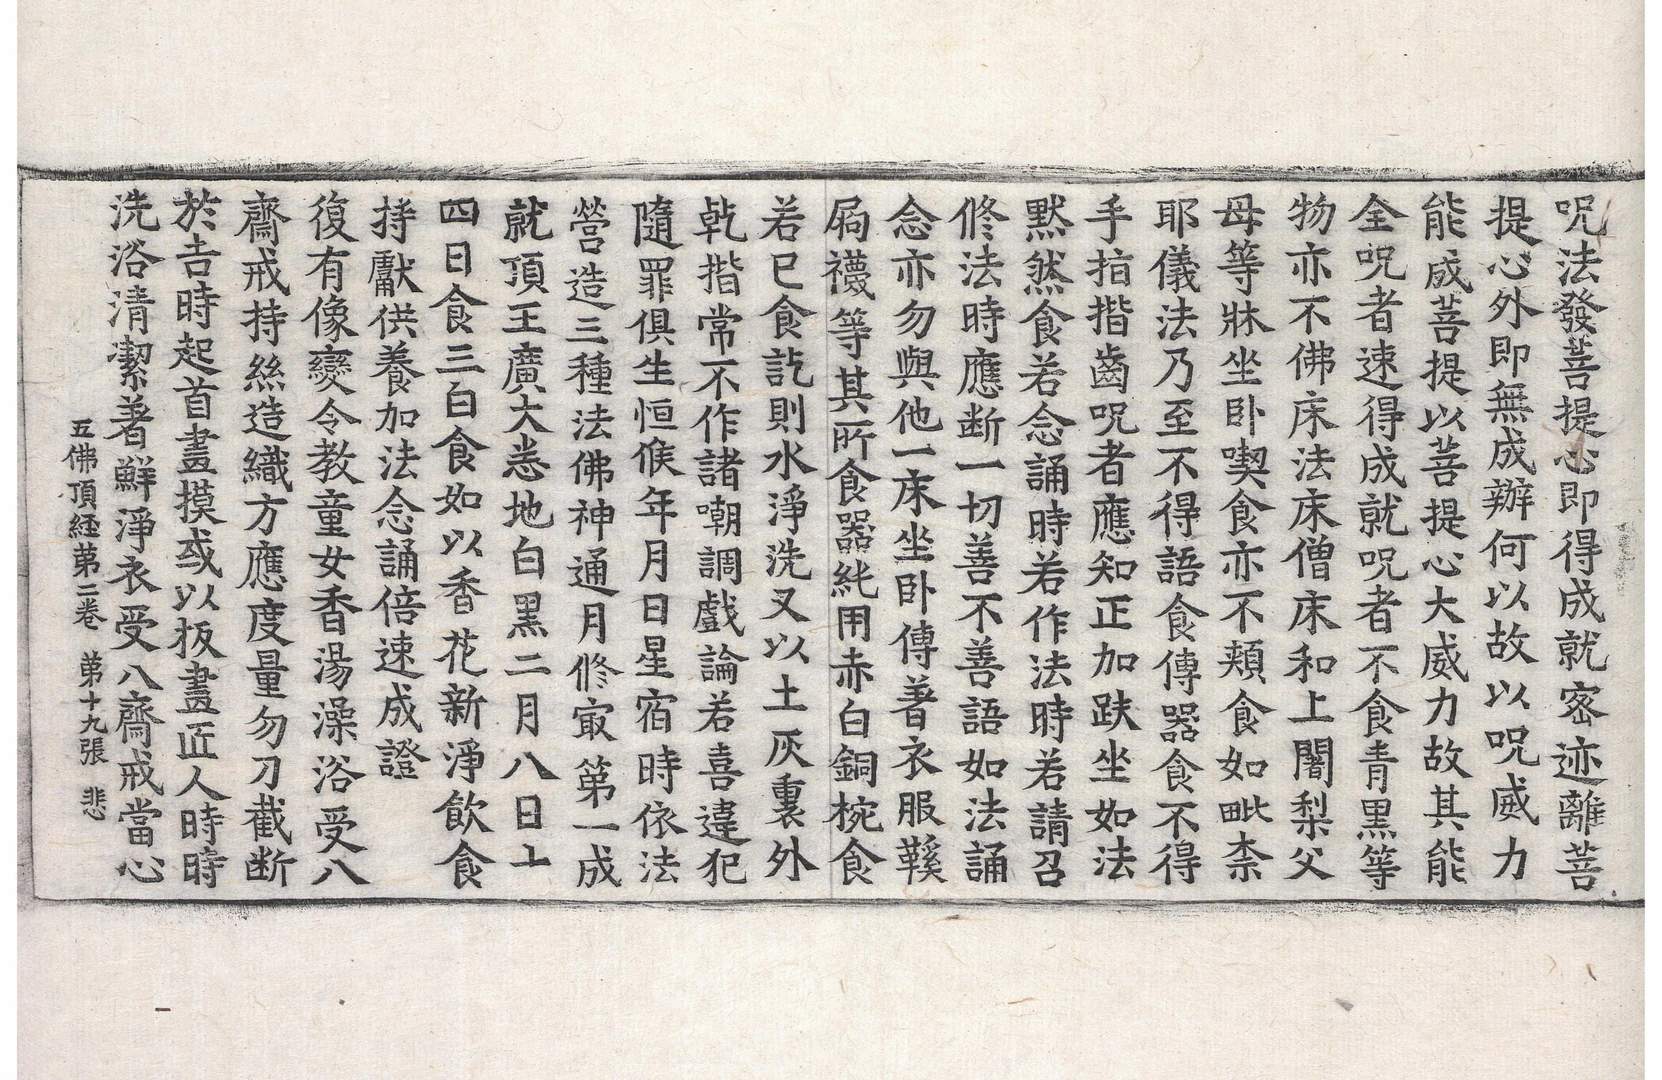 呪法發菩提心即得成就密迹離菩
提心外即無成辦何以故以呪威力
能成菩提以菩提心大威力故其能
全呪者速得成就呪者不食青黑等
物亦不佛床法床僧床和上闍梨父
母等牀坐卧喫食亦不頰食如毗柰
耶儀法乃至不得語食傳器食不得
手指揩齒呪者應知正加趺坐如法
默然食若念誦時若作法時若請召
修法時應断一切善不善語如法誦
念亦勿與他一床坐卧傳著衣服鞵
屩襪等其所食器純用赤白銅椀食
若已食訖則水淨洗又以土灰裏外
乾揩常不作諸嘲調戲論若喜違犯
隨罪俱生恒候年月日星宿時依法
營造三種法佛神通月修㝡第一成
就頂王廣大悉地白黑二月八日十
四日食三白食如以香花新淨飲食
持獻供養加法念誦倍速成證
復有像變令教童女香湯澡浴受八
齋戒持絲造織方應度量勿刀截断
於吉時起首畫摸或以板畫匠人時時
洗浴清潔著鮮淨衣受八齋戒當心
五佛頂經第二卷 第十九張 悲